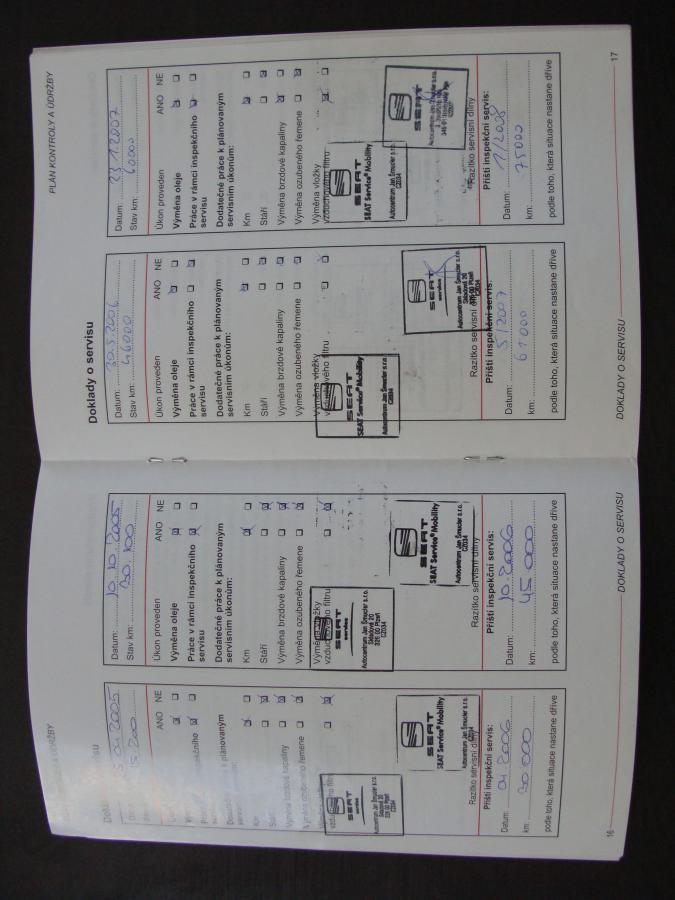 ÚDRŽBY
15 200
Km
Výměna brzdové kapaliny
SEAT
service
Autocentrum Jan Šmucler s.r.o.
SEAT
SEAT Service® Mobility
Autocentrum Jan Šmucler s.r.o.
CZ034
Razítko servisní dílny
Příští inspekční servis:
Datum: 04 2006
km: 30 000
podle toho, která situace nastane dříve
16
Datum: 10. 10. 2005
Stav km: 30. 100
Úkon proveden ANO NE
Výměna oleje
Práce v rámci inspekčního
servisu
Dodatečné práce k plánovaným
servisním úkonům:
Km
Stáří
Výměna brzdové kapaliny
Výměna ozubeného řemene
Výměna vložky
vzduchového filtru
SEAT
service
Autocentrum Jan Šmucler s.r.o.
Skladová 20
CZ034
SEAT
SEAT Service® Mobility
Autocentrum Jan Šmucler s.r.o.
CZ034
Razítko servisní dílny
Příští inspekční servis:
Datum: 10. 2006
km: 45 000
podle toho, která situace nastane dříve
DOKLADY O SERVISU
Doklady o servisu
Datum: 30. 5. 2006
Stav km: 46000
Úkon proveden ANO NE
Výměna oleje
Práce v rámci inspekčního
servisu
Dodatečné práce k plánovaným
servisním úkonům:
Km
Stáří
Výměna brzdové kapaliny
Výměna ozubeného řemene
Výměna vložky
vzduchového filtru
SEAT
SEAT Service® Mobility
Autocentrum Jan Šmucler s.r.o.
CZ034
SEAT
service
Autocentrum Jan Šmucler s.r.o.
Skladová 20
Razítko servisní dílny
Příští inspekční servis:
Datum: 5/2007
km: 61000
podle toho, která situace nastane dříve
DOKLADY O SERVISU
PLÁN KONTROLY A ÚDRŽBY
Datum: 23 1. 2007
Stav km: 60000
Úkon proveden ANO NE
Výměna oleje
Práce v rámci inspekčního
servisu
Dodatečné práce k plánovaným
servisním úkonům:
Km
Stáří
Výměna brzdové kapaliny
Výměna ozubeného řemene
Výměna vložky
vzduchového filtru
SEAT
SEAT Service® Mobility
Autocentrum Jan Šmucler s.r.o.
CZ034
SEAT
Autocentrum Jan Šmucler s.r.o.
Razítko servisní dílny
Příští inspekční servis:
Datum: 1/2008
km: 75000
podle toho, která situace nastane dříve
17